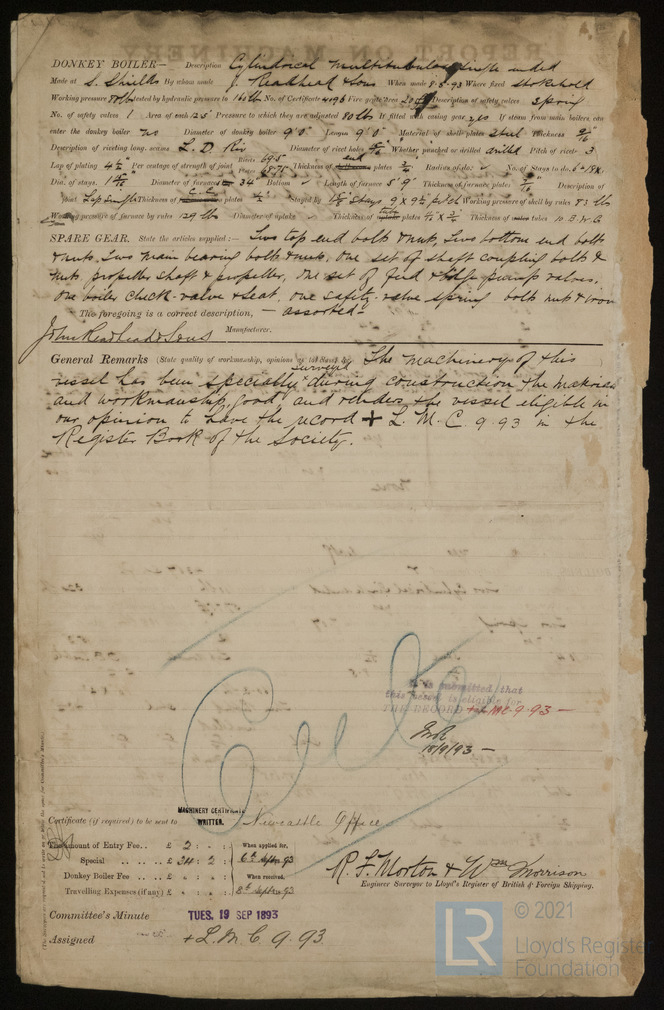 DONKEY BOILER— Description Cylindrical multitubular single ended
Made at S. Shields By whom made J. Readhead & Sons When made 8.5.93 Where fixed stokehold
Working pressure 80lb tested by hydraulic pressure to 160lb No. of Certificate 4096 Fire grate area Description of safety valves Spring
No. of safety valves 1 Area of each 12.5 Pressure to which they are adjusted 80lb If fitted with easing gear yes If steam from main boilers can
enter the donkey boiler no Diameter of donkey boiler 9'0" Length 9'0" Material of shell plates Steel Thickness 9/16
Description of riveting long. seams L. D. Riv Diameter of rivet holes Whether punched or drilled drilled Pitch of rivets 3
Lap of plating 4 1/2 Per centage of strength of joint Rivets 69.5 Plates 68.75 Thickness of end plates 3/4 Radius of do. No. of Stays to do.
Dia. of stays. Diameter of furnace 34" Bottom Length of furnace 5'9" Thickness of furnace plates Description of
joint Lap Single Thickness of C.C. plates Stayed by 1 3/8 Stays 9 x 9 1/2 pitch Working pressure of shell by rules 83 lb
Working pressure of furnace by rules 129 lb Diameter of uptake Thickness of plates Thickness of tubes 10 B.W.G
SPARE GEAR. State the articles supplied:— Two top end bolts & nuts, Two bottom end bolts
& nuts, Two main bearing bolts & nuts, one set of shaft coupling bolts &
nuts, propeller shaft & propeller, one set of feed & bilge pump valves,
one boiler check-valve & seat, one safety-valve spring bolts nuts & iron
The foregoing is a correct description, — assorted—
John Readhead & Sons Manufacturer.
General Remarks (State quality of workmanship, opinions as to class, &c. The machinery of this
vessel has been specially surveyed during construction the material
and workmanship good and renders the vessel eligible in
our opinion to have the record + L. M. C. 9.93 in the
Register Book of the Society.
It is submitted that
this vessel is eligible for
THE RECORD + LMC 9.93 —
18/9/93 —
MACHINERY CERTIFICATE
WRITTEN.
Certificate (if required) to be sent to Newcastle Office
The amount of Entry Fee.. £ 2 : : When applied for,
Special .. .. £ 24 : 2 : 6th Septr 93
Donkey Boiler Fee .. £ : : When received,
Travelling Expenses (if any) £ : : 8th Septr 93
R. F. Morton & Wm Morrison
Engineer Surveyor to Lloyd's Register of British & Foreign Shipping.
Committee's Minute TUES. 19 SEP 1893
Assigned + L. M. C. 9.93
LR
© 2021
Lloyd's Register
Foundation